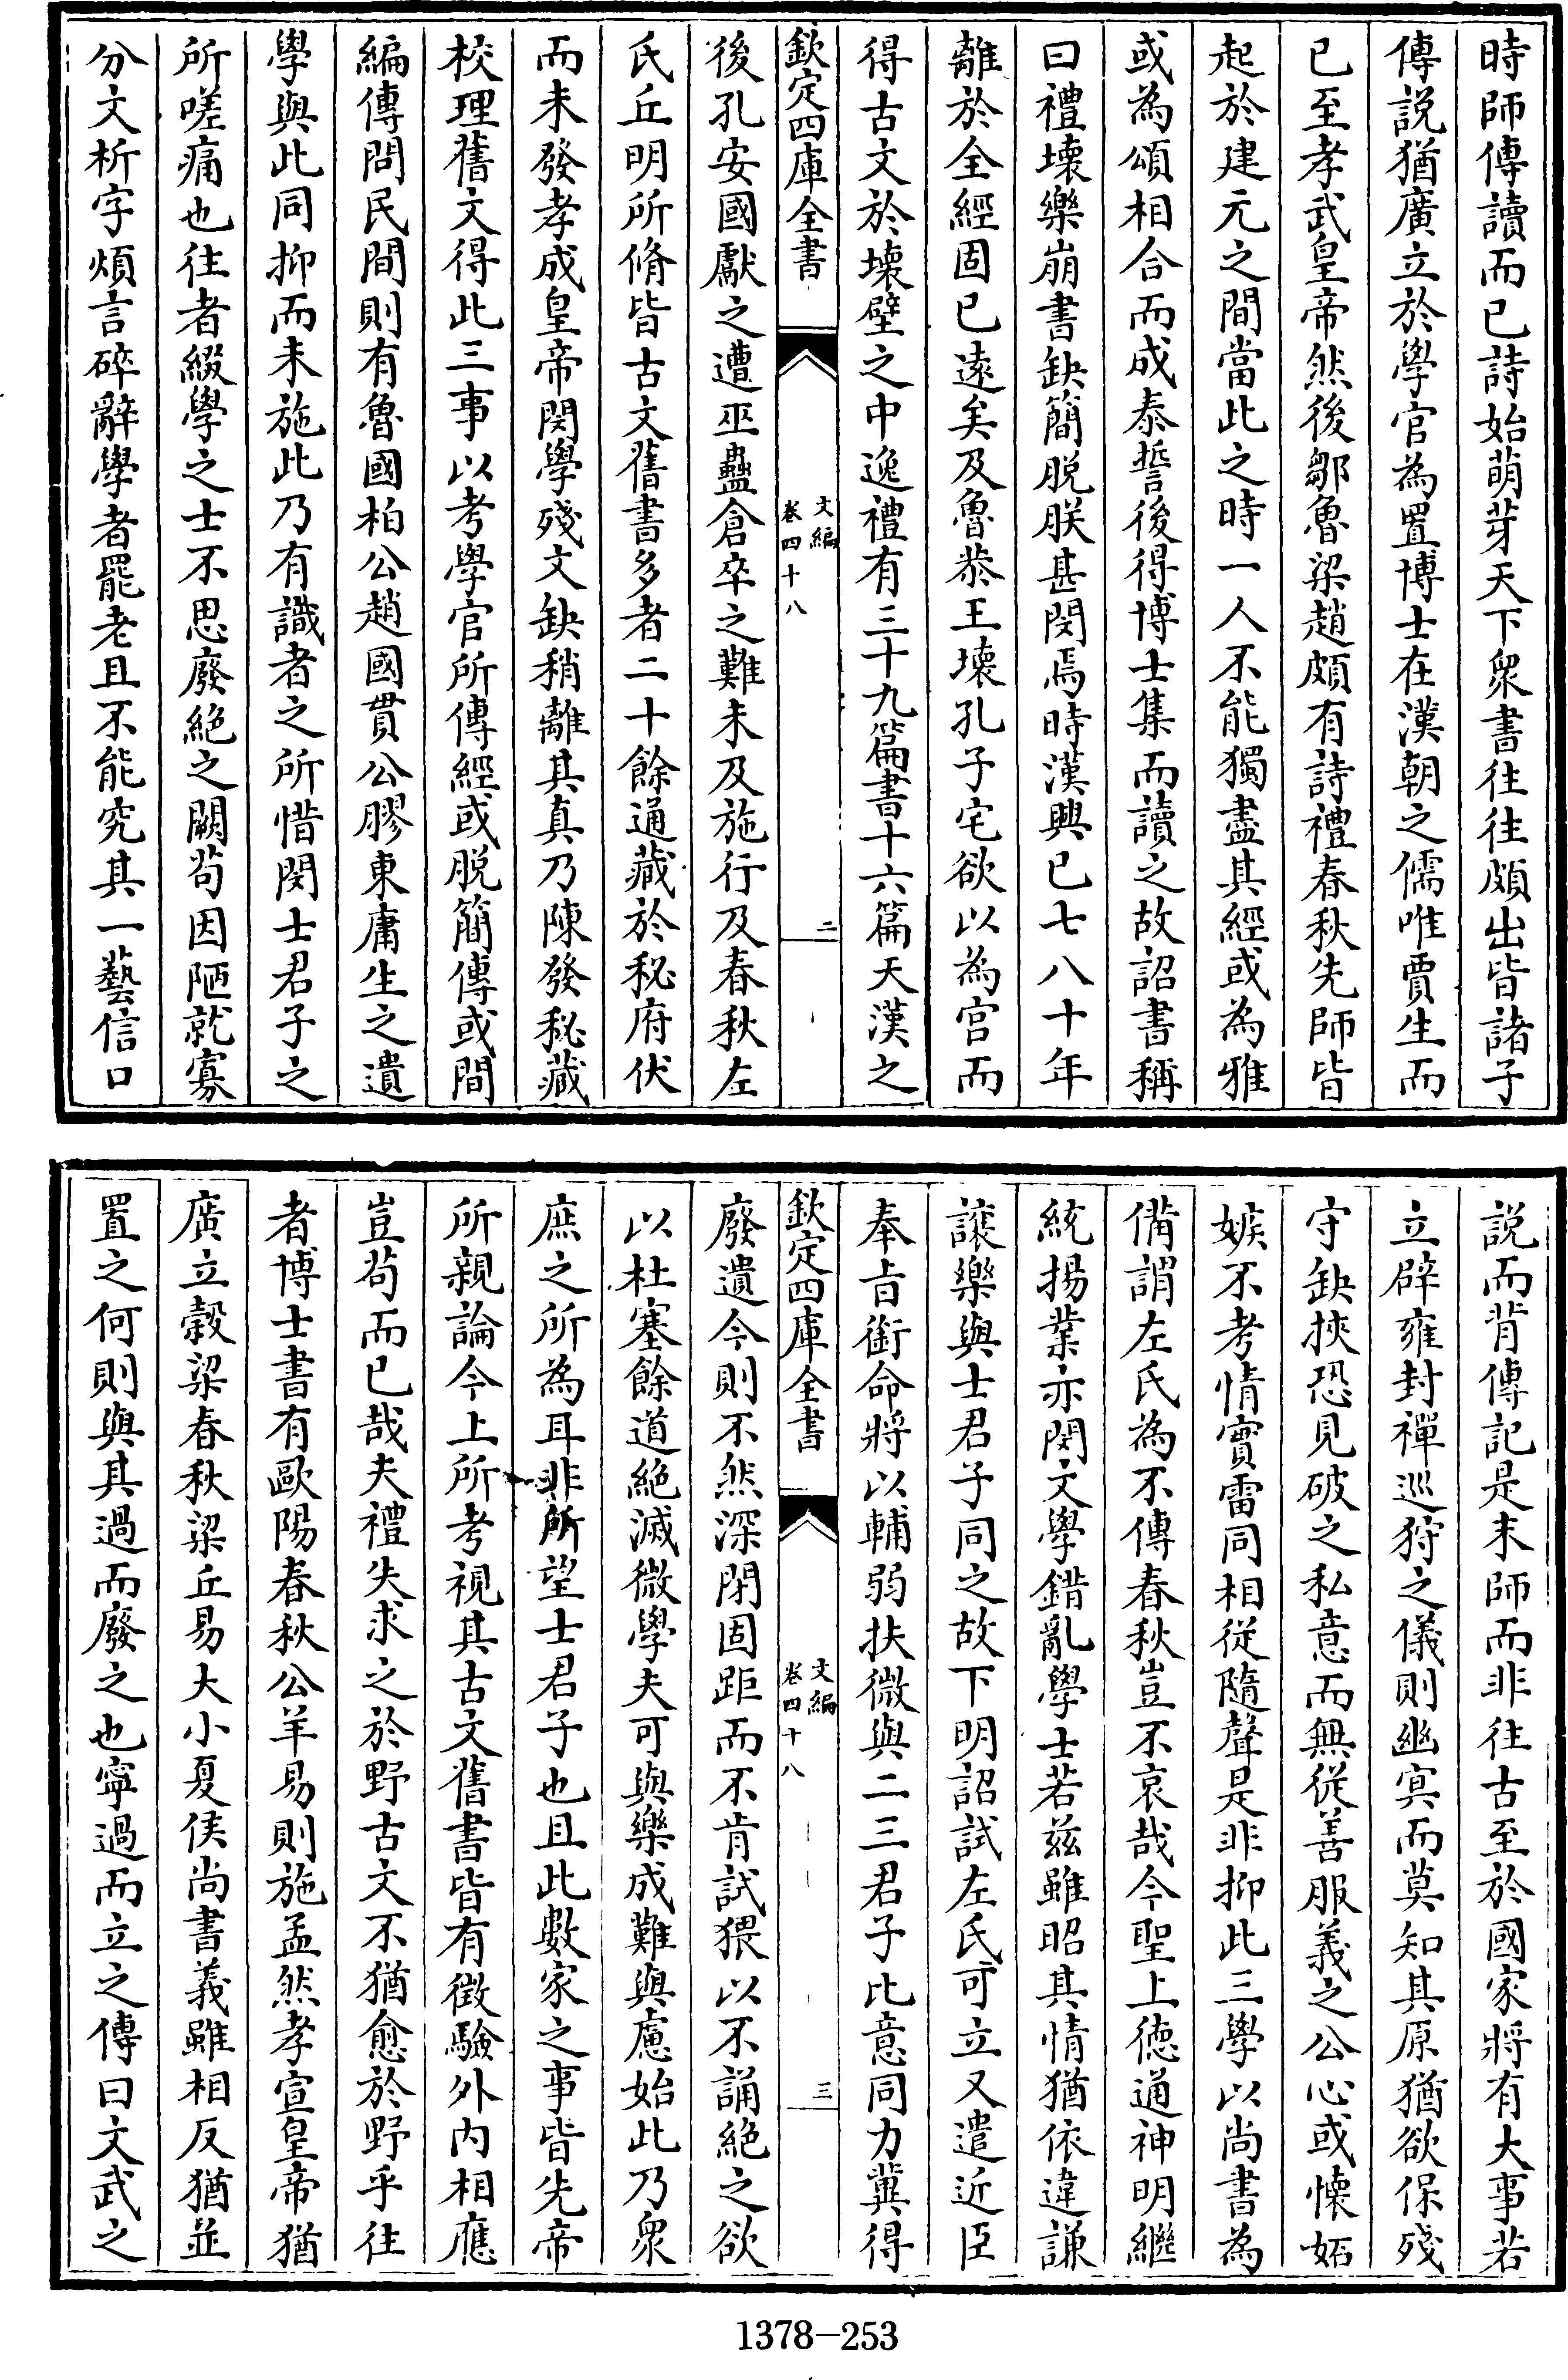 時師傳讀而已詩始萌芽天下衆書往往頗出皆諸子
傳説猶廣立於學官為置博士在漢朝之儒唯賈生而
已至孝武皇帝然後鄒魯梁趙頗有詩禮春秋先師皆
起於建元之間當此之時一人不能獨盡其經或為雅
或為頌相合而成泰誓後得博士集而讀之故詔書稱
曰禮壞樂崩書缺簡脱朕甚閔焉時漢興已七八十年
離於全經固已遠矣及魯恭王壞孔子宅欲以為宫而
得古文於壞壁之中逸禮有三十九篇書十六篇天漢之
欽定四庫全書
文編
卷四十八
二
後孔安國獻之遭巫蠱倉卒之難未及施行及春秋左
氏丘明所脩皆古文舊書多者二十餘通藏於秘府伏
而未發孝成皇帝閔學殘文缺稍離其真乃陳發秘藏
校理舊文得此三事以考學官所傳經或脱簡傳或間
編傳問民間則有魯國柏公趙國貫公膠東庸生之遺
學與此同抑而未施此乃有識者之所惜閔士君子之
所嗟痛也往者綴學之士不思廢絶之闕茍因陋就寡
分文析字煩言碎辭學者罷老且不能究其一藝信口
説而背傳記是末師而非往古至於國家將有大事若
立辟雍封禪巡狩之儀則幽㝠而莫知其原猶欲保殘
守缺挾恐見破之私意而無從善服義之公心或懐妬
嫉不考情實雷同相從隨聲是非抑此三學以尚書為
備謂左氏為不傳春秋豈不哀哉今聖上徳通神明繼
統揚業亦閔文學錯亂學士若兹雖昭其情猶依違謙
讓樂與士君子同之故下明詔試左氏可立又遣近臣
奉㫖銜命將以輔弱扶微與二三君子比意同力冀得
欽定四庫全書
文編
卷四十八
三
廢遺今則不然深閉固距而不肯試猥以不誦絶之欲
以杜塞餘道絶滅微學夫可與樂成難與慮始此乃衆
庶之所為耳非所望士君子也且此數家之事皆先帝
所親論今上所考視其古文舊書皆有徴驗外内相應
豈茍而已哉夫禮失求之於野古文不猶愈於野乎往
者博士書有歐陽春秋公羊易則施孟然孝宣皇帝猶
廣立穀梁春秋梁丘易大小夏侯尚書義雖相反猶並
置之何則與其過而廢之也寧過而立之傳曰文武之
1378-253